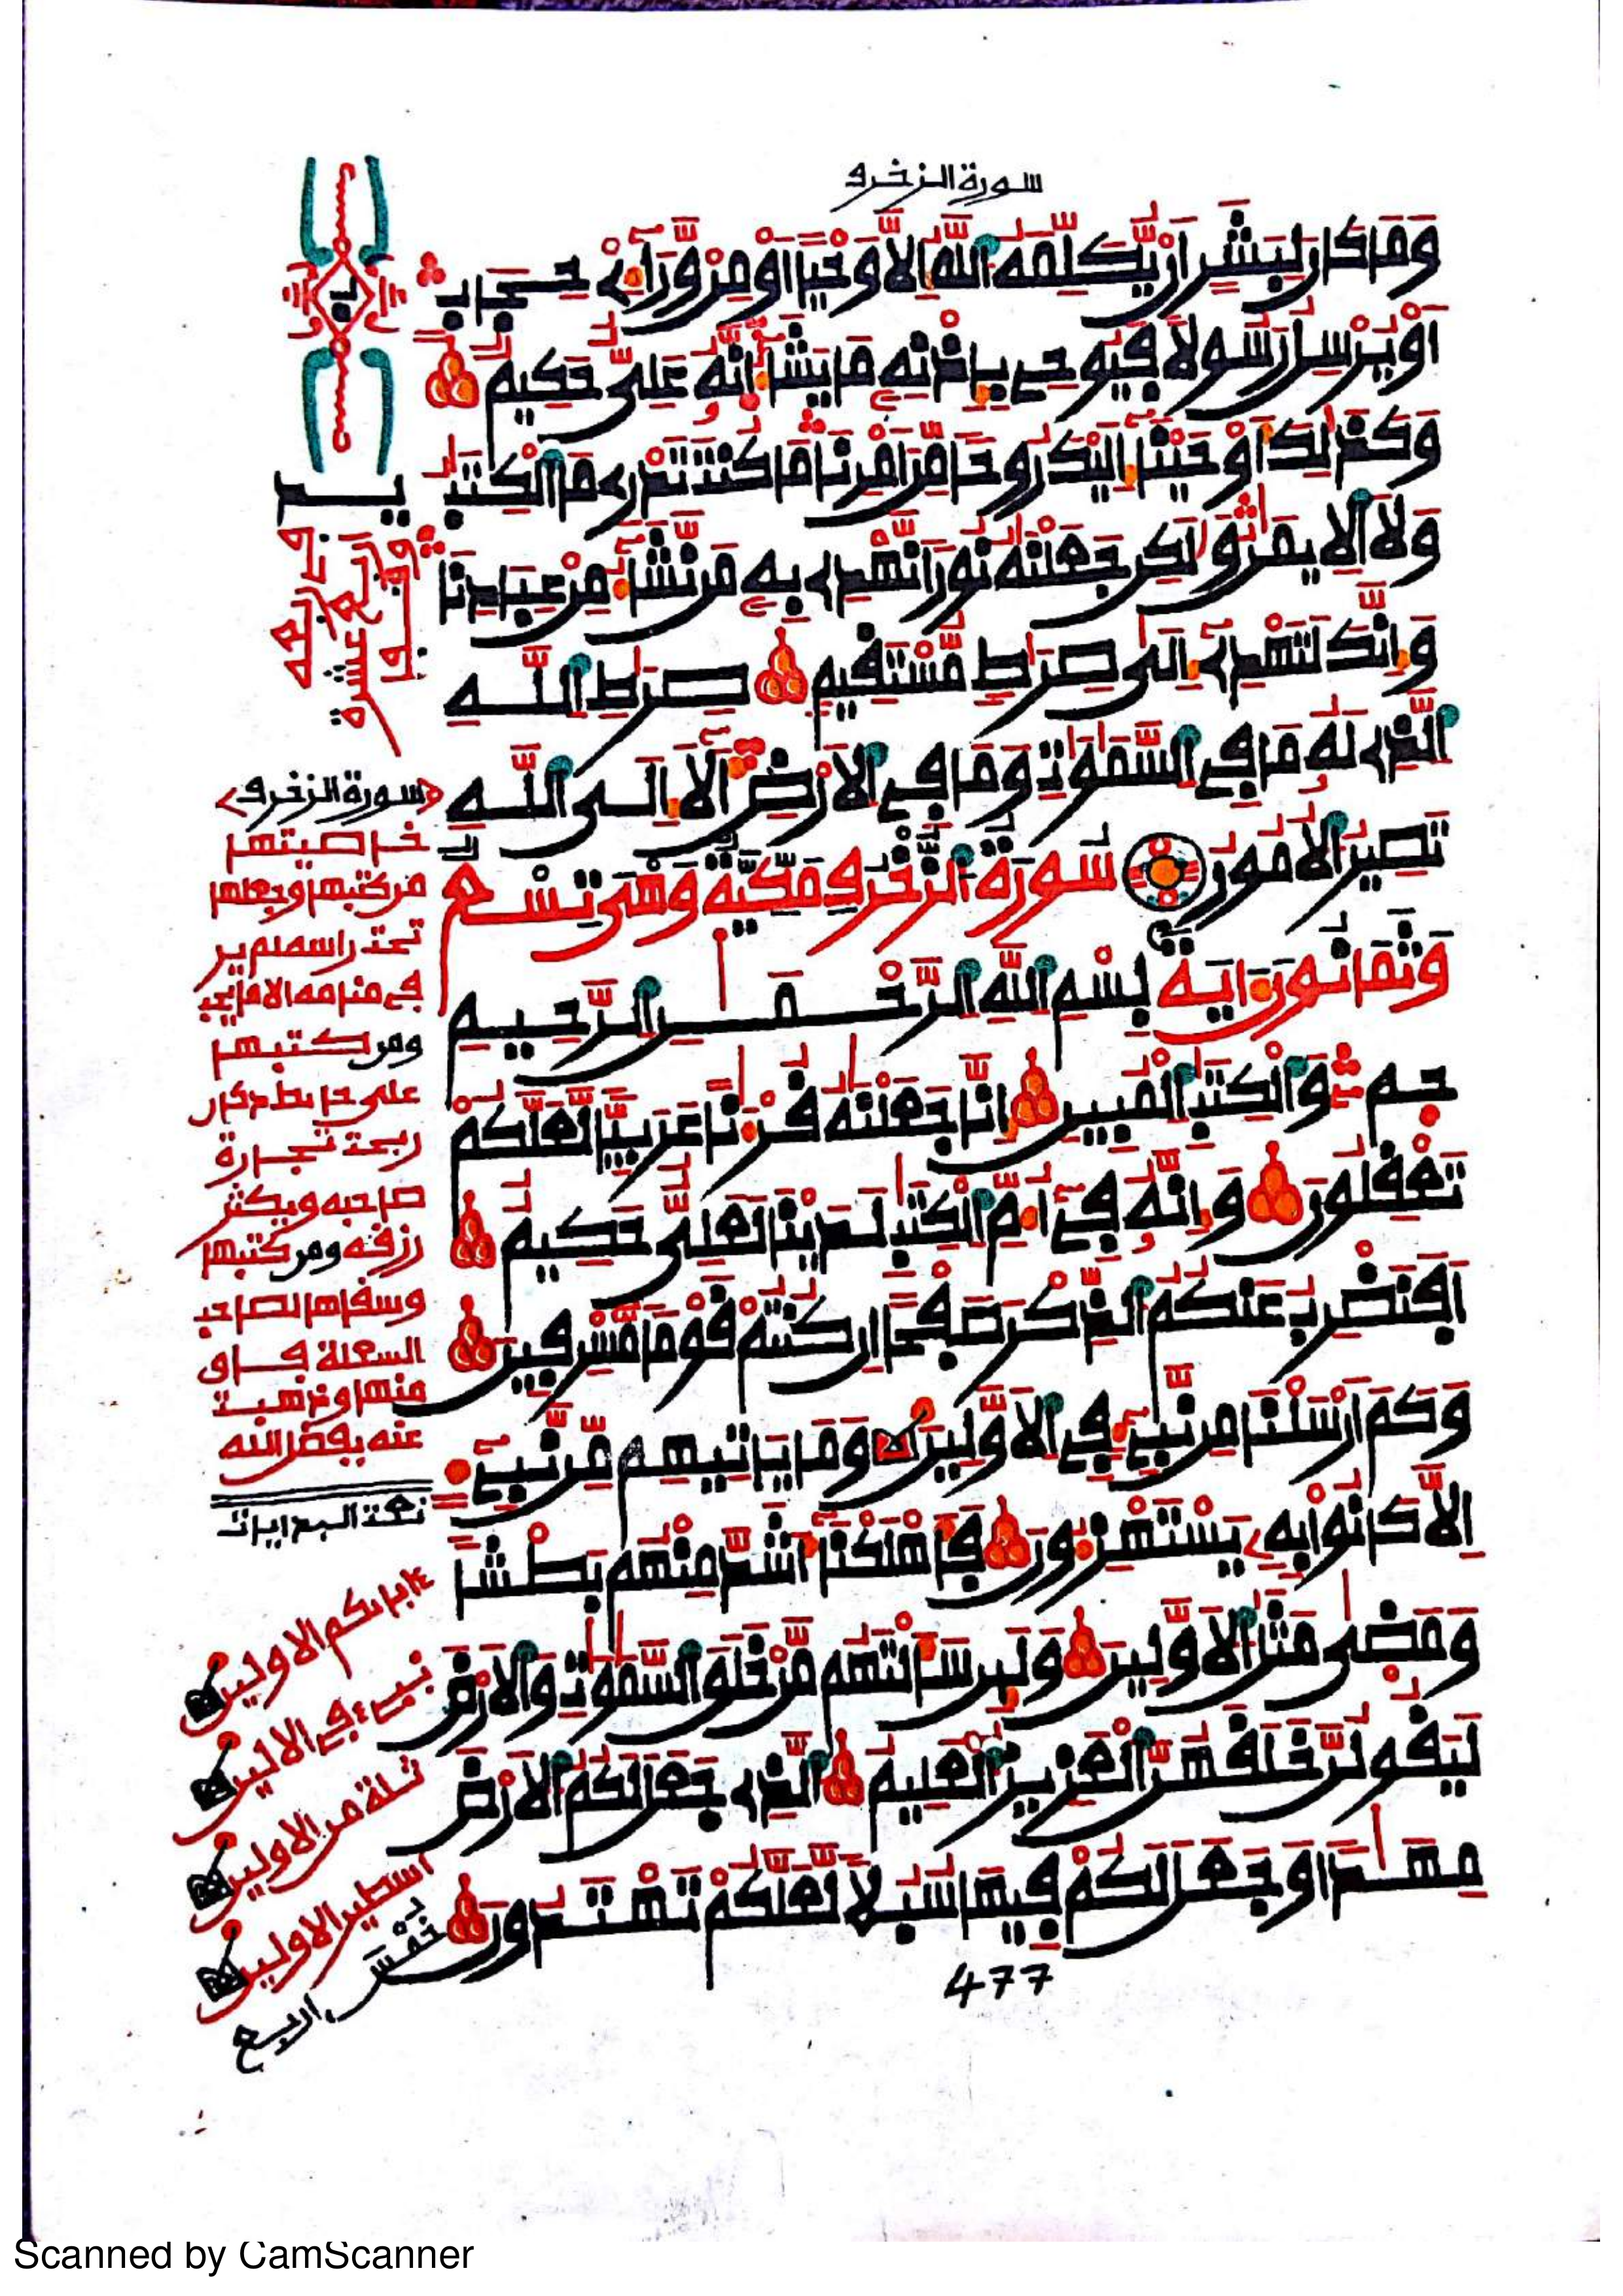 سورة الزخرف
وَمَا كَانَ لِبَشَرٍ اَنْ يُّكَلِّمَهُ اللَّهُ إِلَّا وَحْيًا اَوْ مِنْ وَّرَآءِ حِجَابٍ
اَوْ يُرْسِلُ رَسُولًا فَيُوحِي بِإِذْنِهِ مَا يَشَآءُ إِنَّهُ عَلِيٌّ حَكِيمٌ
وَكَذَٰلِكَ أَوْحَيْنَآ إِلَيْكَ رُوحًا مِّنَ اَمْرِنَا مَا كُنتَ تَدْرِي مَا الْكِتَٰبُ
وَلَا الْإِيمَٰنُ وَلَٰكِن جَعَلْنَٰهُ نُورًا نَّهْدِي بِهِ مَن نَّشَآءُ مِنْ عِبَادِنَا
وَإِنَّكَ لَتَهْدِي إِلَىٰ صِرَٰطٍ مُّسْتَقِيمٍ صِرَٰطِ اللَّهِ
الَّذِي لَهُ مَا فِي السَّمَٰوَٰتِ وَمَا فِي الْأَرْضِ أَلَآ إِلَى اللَّهِ
تَصِيرُ الْأُمُورُ سُورَةُ الزُّخْرُفِ مَكِّيَّةٌ وَهْيَ تِسْعٌ
وَثَمَانُونَ ءَايَةً بِسْمِ اللَّهِ الرَّحْمَٰنِ الرَّحِيمِ
حم وَالْكِتَٰبِ الْمُبِينِ إِنَّا جَعَلْنَٰهُ قُرْءَٰنًا عَرَبِيًّا لَّعَلَّكُمْ
تَعْقِلُونَ وَإِنَّهُ فِي أُمِّ الْكِتَٰبِ لَدَيْنَا لَعَلِيٌّ حَكِيمٌ
اَفَنَضْرِبُ عَنكُمُ الذِّكْرَ صَفْحًا إِن كُنتُمْ قَوْمًا مُّسْرِفِينَ
وَكَمَ اَرْسَلْنَا مِن نَّبِيءٍ فِي الْأَوَّلِينَ وَمَا يَاتِيهِم مِّن نَّبِيءٍ
إِلَّا كَانُوا بِهِ يَسْتَهْزِءُونَ فَأَهْلَكْنَآ أَشَدَّ مِنْهُم بَطْشًا
وَمَضَىٰ مَثَلُ الْأَوَّلِينَ وَلَئِن سَأَلْتَهُم مَّنْ خَلَقَ السَّمَٰوَٰتِ وَالْأَرْضَ
لَيَقُولُنَّ خَلَقَهُنَّ الْعَزِيزُ الْعَلِيمُ الَّذِي جَعَلَ لَكُمُ الْأَرْضَ
مِهَٰدًا وَجَعَلَ لَكُمْ فِيهَا سُبُلًا لَّعَلَّكُمْ تَهْتَدُونَ
477
سورة الزخرف
خاصيتها
من كتبها وجعلها
تحت راسه لم ير
في منامه الا ما يحب
ومن كتبها
على حايط دكان
ربحت تجارة
صاحبه ويكثر
رزقه ومن كتبها
وسقاها لصاحب
السعلة فاق
منها وذهبت
عنه بفضل الله
ءابائكم الاولين
نبيء في الاولين
ثلة من الاولين
اسطير الاولين
خمس اربع
Scanned by CamScanner